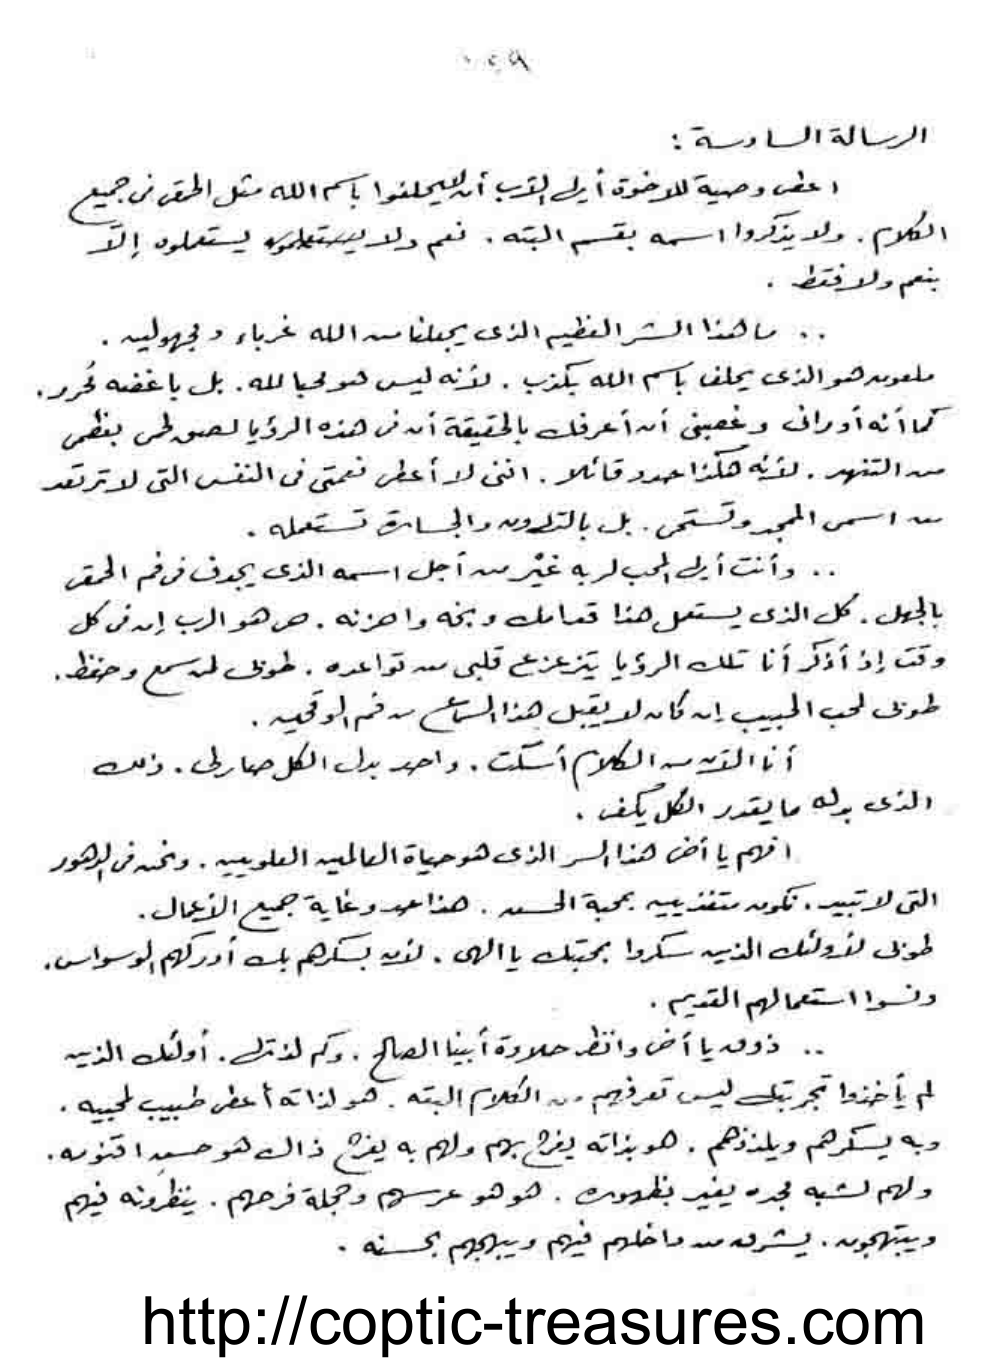 الرسالة السادسة :
اعطى وصية للاخوة أيها الأب أن لايحلفوا باسم الله مثل الحمقى فى جميع
الكلام . ولا يذكروا اسمه بقسم البته . نعم ولا يستعملوه إلّا
بنعم ولا فقط .
.. ما هذا الشر العظيم الذى يجعلنا من الله غرباء ومجهولين .
ملعون هو الذى يحلف باسم الله بكذب . لأنه ليس هو محبا لله . بل باغضه مُحرر .
كما أنه أورانى وغصبنى أن أعرفك بالحقيقة أن فى هذه الرؤيا لصق لحمى بعظمى
من التنهد . لأنه هكذا حدد قائلا . اننى لا أعطى نعمتى فى النفس التى لا ترتعد
من اسمى الممجد وتستحى . بل بالتهاون والجسارة تستعمله .
.. وأنت أيها المحب لربه غيْر من أجل اسمه الذى يجدف فى فم الحمقى
بالجهل . كل الذى يستعمل هذا قدامك وبخه واحزنه . حى هو الرب إن فى كل
وقت إذ أذكر أنا تلك الرؤيا يتزعزع قلبى من قواعده . طوبى لمن سمع وحفظ .
طوبى لمحب الحبيب إن كان لا يقبل هذا السماع من فم الوقحين .
أنا الآن من الكلام أسكت . واحد بدل الكل صار لى . ذلك
الذى بدله ما يقدر الكل يكفى .
افهم يا أخى هذا السر الذى هو حياة العالمين العلويين . ونحن فى الدهور
التى لا تبيد . نكون متغذيين بمحبة الحسن . هذا حد وغاية جميع الأعمال .
طوبى لأولئك الذين سكروا بمحبتك يا الهى . لأن بسكرهم بك أدركهم الوسواس .
ونسوا استعمالهم القديم .
.. ذوق يا أخى وانظر حلاوة أبينا الصالح . وكم لذته . أولئك الذين
لم يأخذوا تجربتك ليس تعرفهم من الكلام البته . هو لذاته أعطى طبيب لمحبيه .
وبه يسكرهم ويلذذهم . هو بذاته يفرح بهم ولهم به يفرح ذاك هو حسن اقنومه .
ولهم لشبه مجده يغير بظهوره . هو هو عرسهم وحجلة فرحهم . ينظرونه فيهم
ويبتهجون . يشرق من داخلهم فيهم ويبهجهم بحسنه .
http://coptic-treasures.com